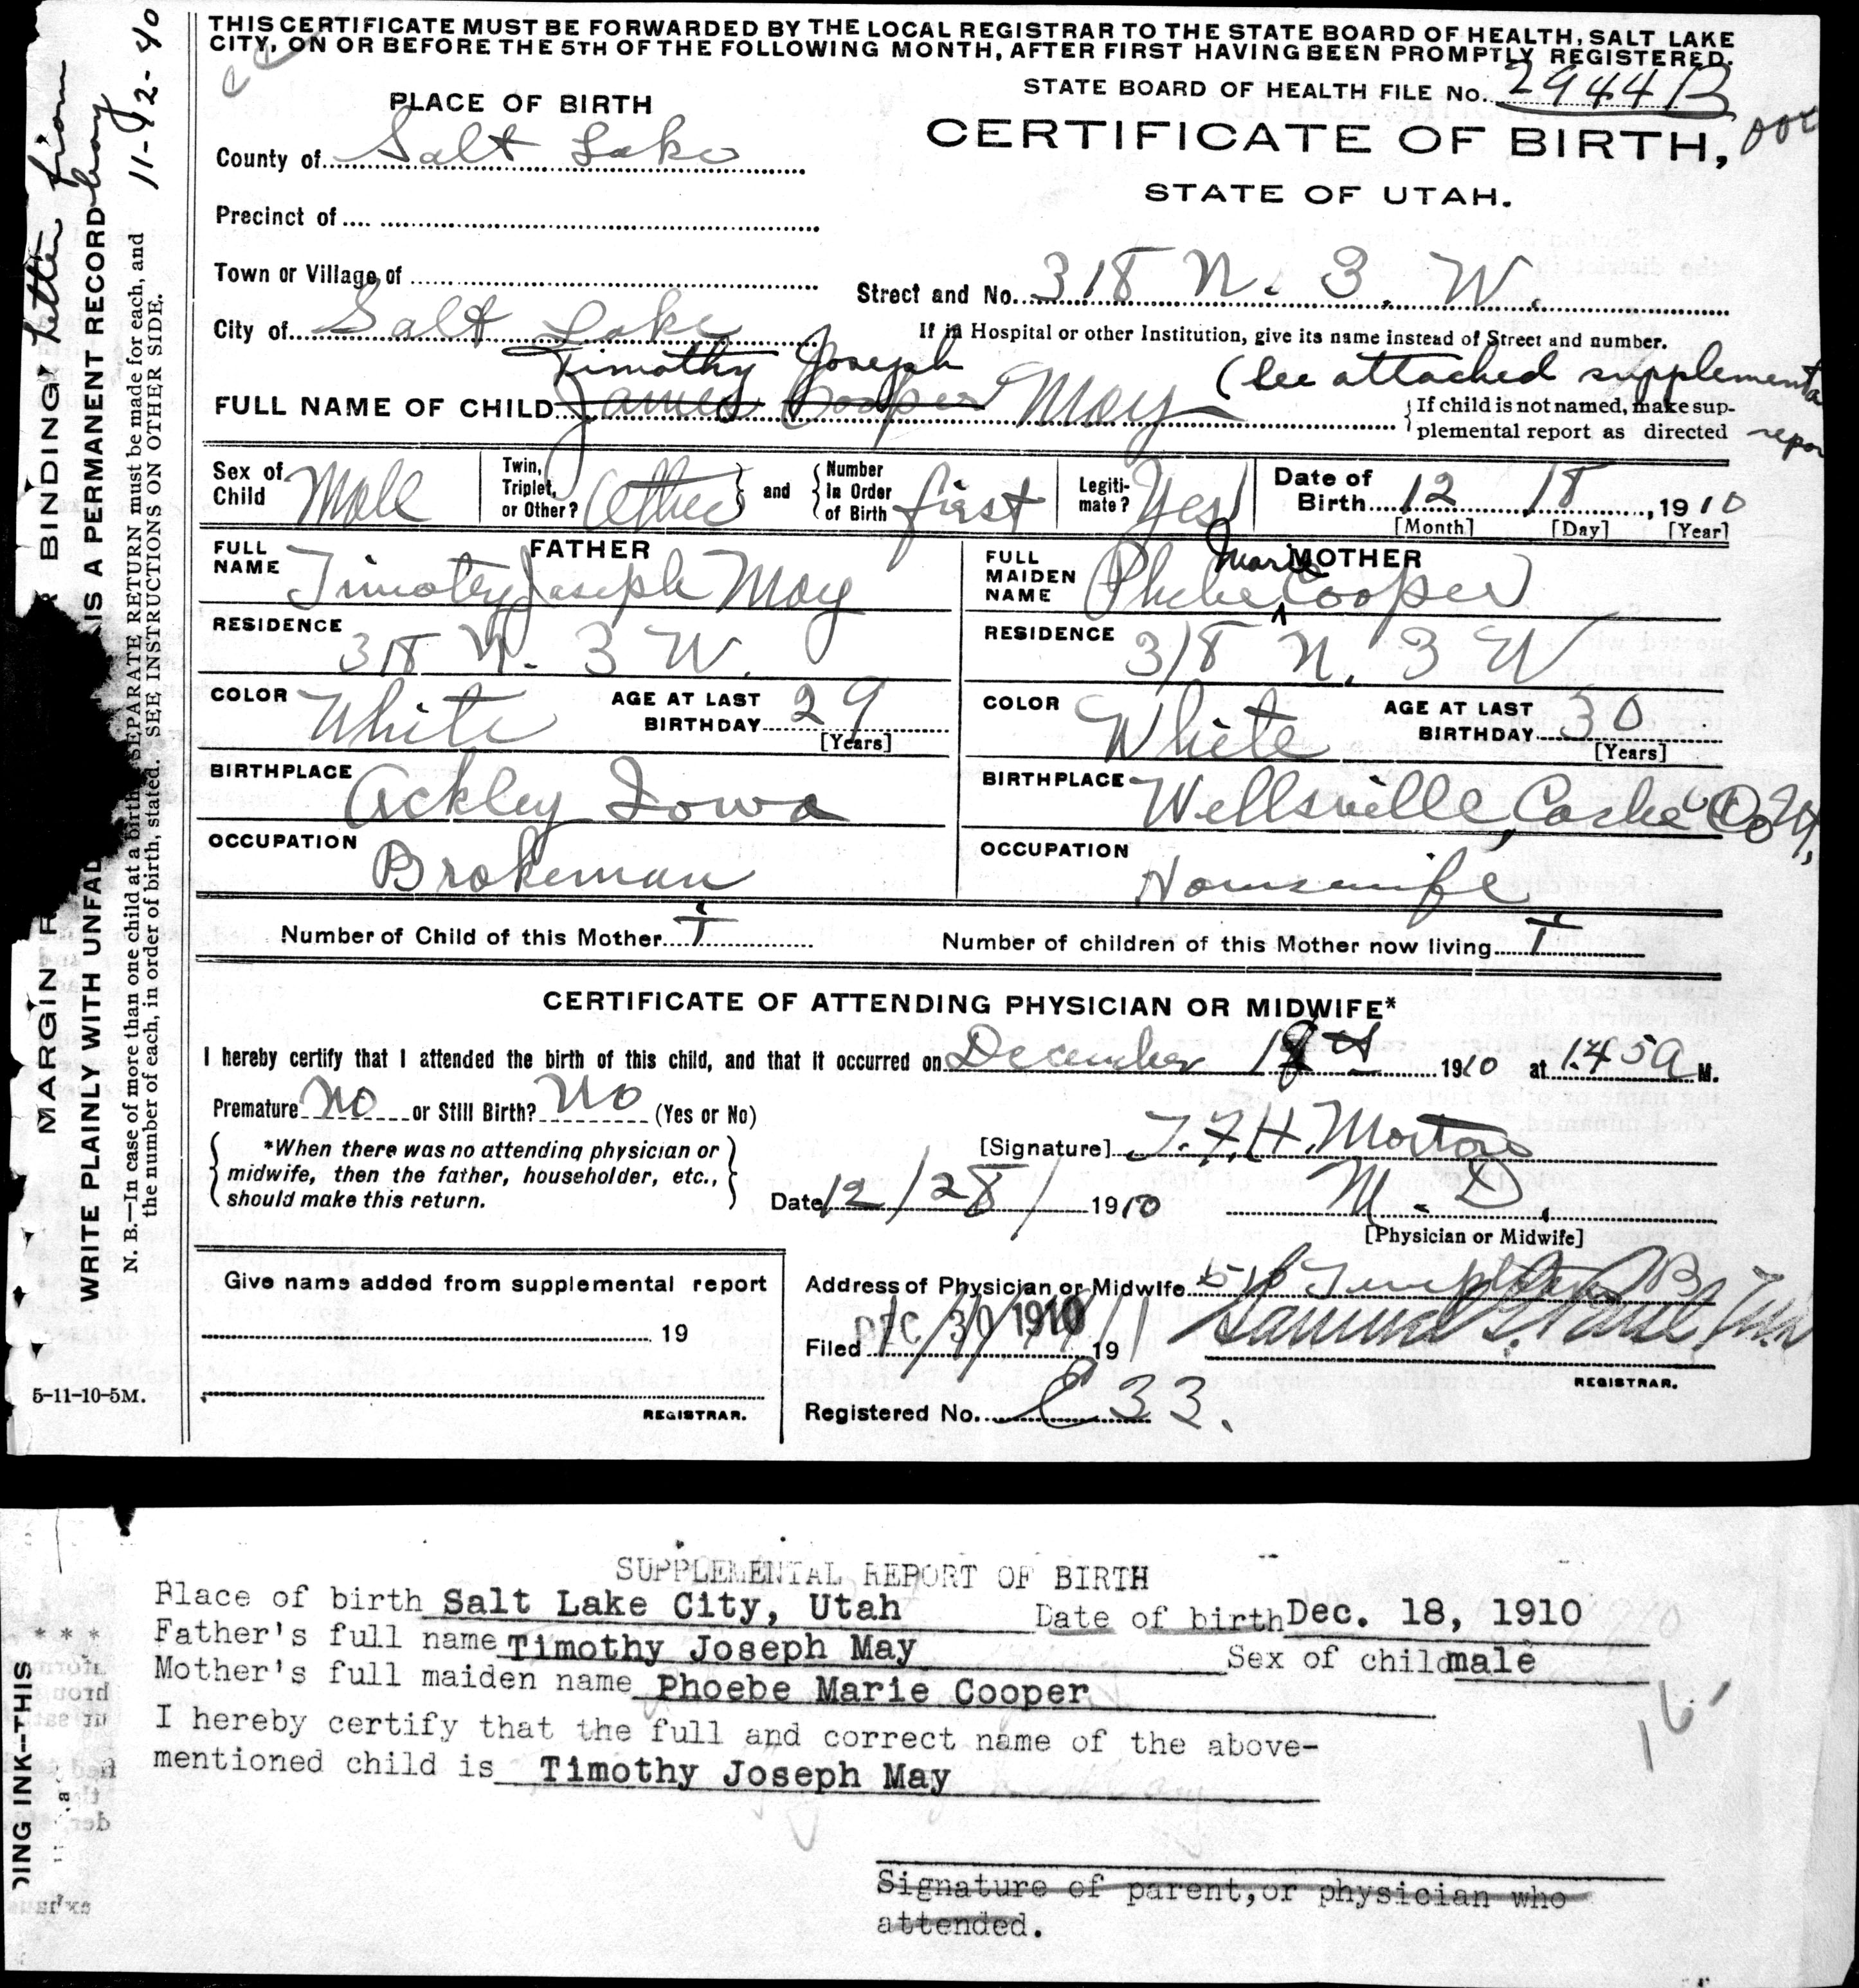 THIS CERTIFICATE MUST BE FORWARDED BY THE LOCAL REGISTRAR TO THE STATE BOARD OF HEALTH, SALT LAKE
CITY, ON OR BEFORE THE 5TH OF THE FOLLOWING MONTH, AFTER FIRST HAVING BEEN PROMPTLY REGISTERED.
STATE BOARD OF HEALTH FILE No. 2944 B
PLACE OF BIRTH
CERTIFICATE OF BIRTH,
STATE OF UTAH.
County of Salt Lake
Precinct of
Town or Village of
Street and No. 318 N. 3. W.
City of Salt Lake
If in Hospital or other Institution, give its name instead of Street and number.
Timothy Joseph
(See attached supplementa
FULL NAME OF CHILD James Cooper May
If child is not named, make sup-
plemental report as directed
repor
Sex of Child Male
Twin, Triplet, or Other? Other and Number in Order of Birth first
Legiti-mate? Yes
Date of Birth 12 18, 1910
[Month] [Day] [Year]
FATHER
FULL NAME Timothy Joseph May
RESIDENCE 318 N. 3 W.
COLOR White AGE AT LAST BIRTHDAY 29
[Years]
BIRTHPLACE Ackley Iowa
OCCUPATION Brakeman
MOTHER
FULL MAIDEN NAME Phebe Marie Cooper
RESIDENCE 318 N. 3 W
COLOR White AGE AT LAST BIRTHDAY 30
[Years]
BIRTHPLACE Wellsville, Cache Co
OCCUPATION Housewife
Number of Child of this Mother I
Number of children of this Mother now living I
CERTIFICATE OF ATTENDING PHYSICIAN OR MIDWIFE*
I hereby certify that I attended the birth of this child, and that it occurred on December 18th 1910 at 1.45 A M.
Premature No or Still Birth? No (Yes or No)
*When there was no attending physician or
midwife, then the father, householder, etc.,
should make this return.
[Signature] T. F. H. Morton
M. D.
Date 12/28/ 1910
[Physician or Midwife]
Give name added from supplemental report
19
REGISTRAR.
Address of Physician or Midwife 516 Templeton B
Filed DEC 30 1910 191
REGISTRAR.
Registered No. 33.
5-11-10-5M.
Letter from
11-12-40
BINDING
MARGIN R
WRITE PLAINLY WITH UNFAD
IS A PERMANENT RECORD
N. B.—In case of more than one child at a birth SEPARATE RETURN must be made for each, and
the number of each, in order of birth, stated. SEE INSTRUCTIONS ON OTHER SIDE.
SUPPLEMENTAL REPORT OF BIRTH
Place of birth Salt Lake City, Utah Date of birth Dec. 18, 1910
Father's full name Timothy Joseph May Sex of child male
Mother's full maiden name Phoebe Marie Cooper
I hereby certify that the full and correct name of the above-
mentioned child is Timothy Joseph May
Signature of parent, or physician who
attended.
DING INK--THIS